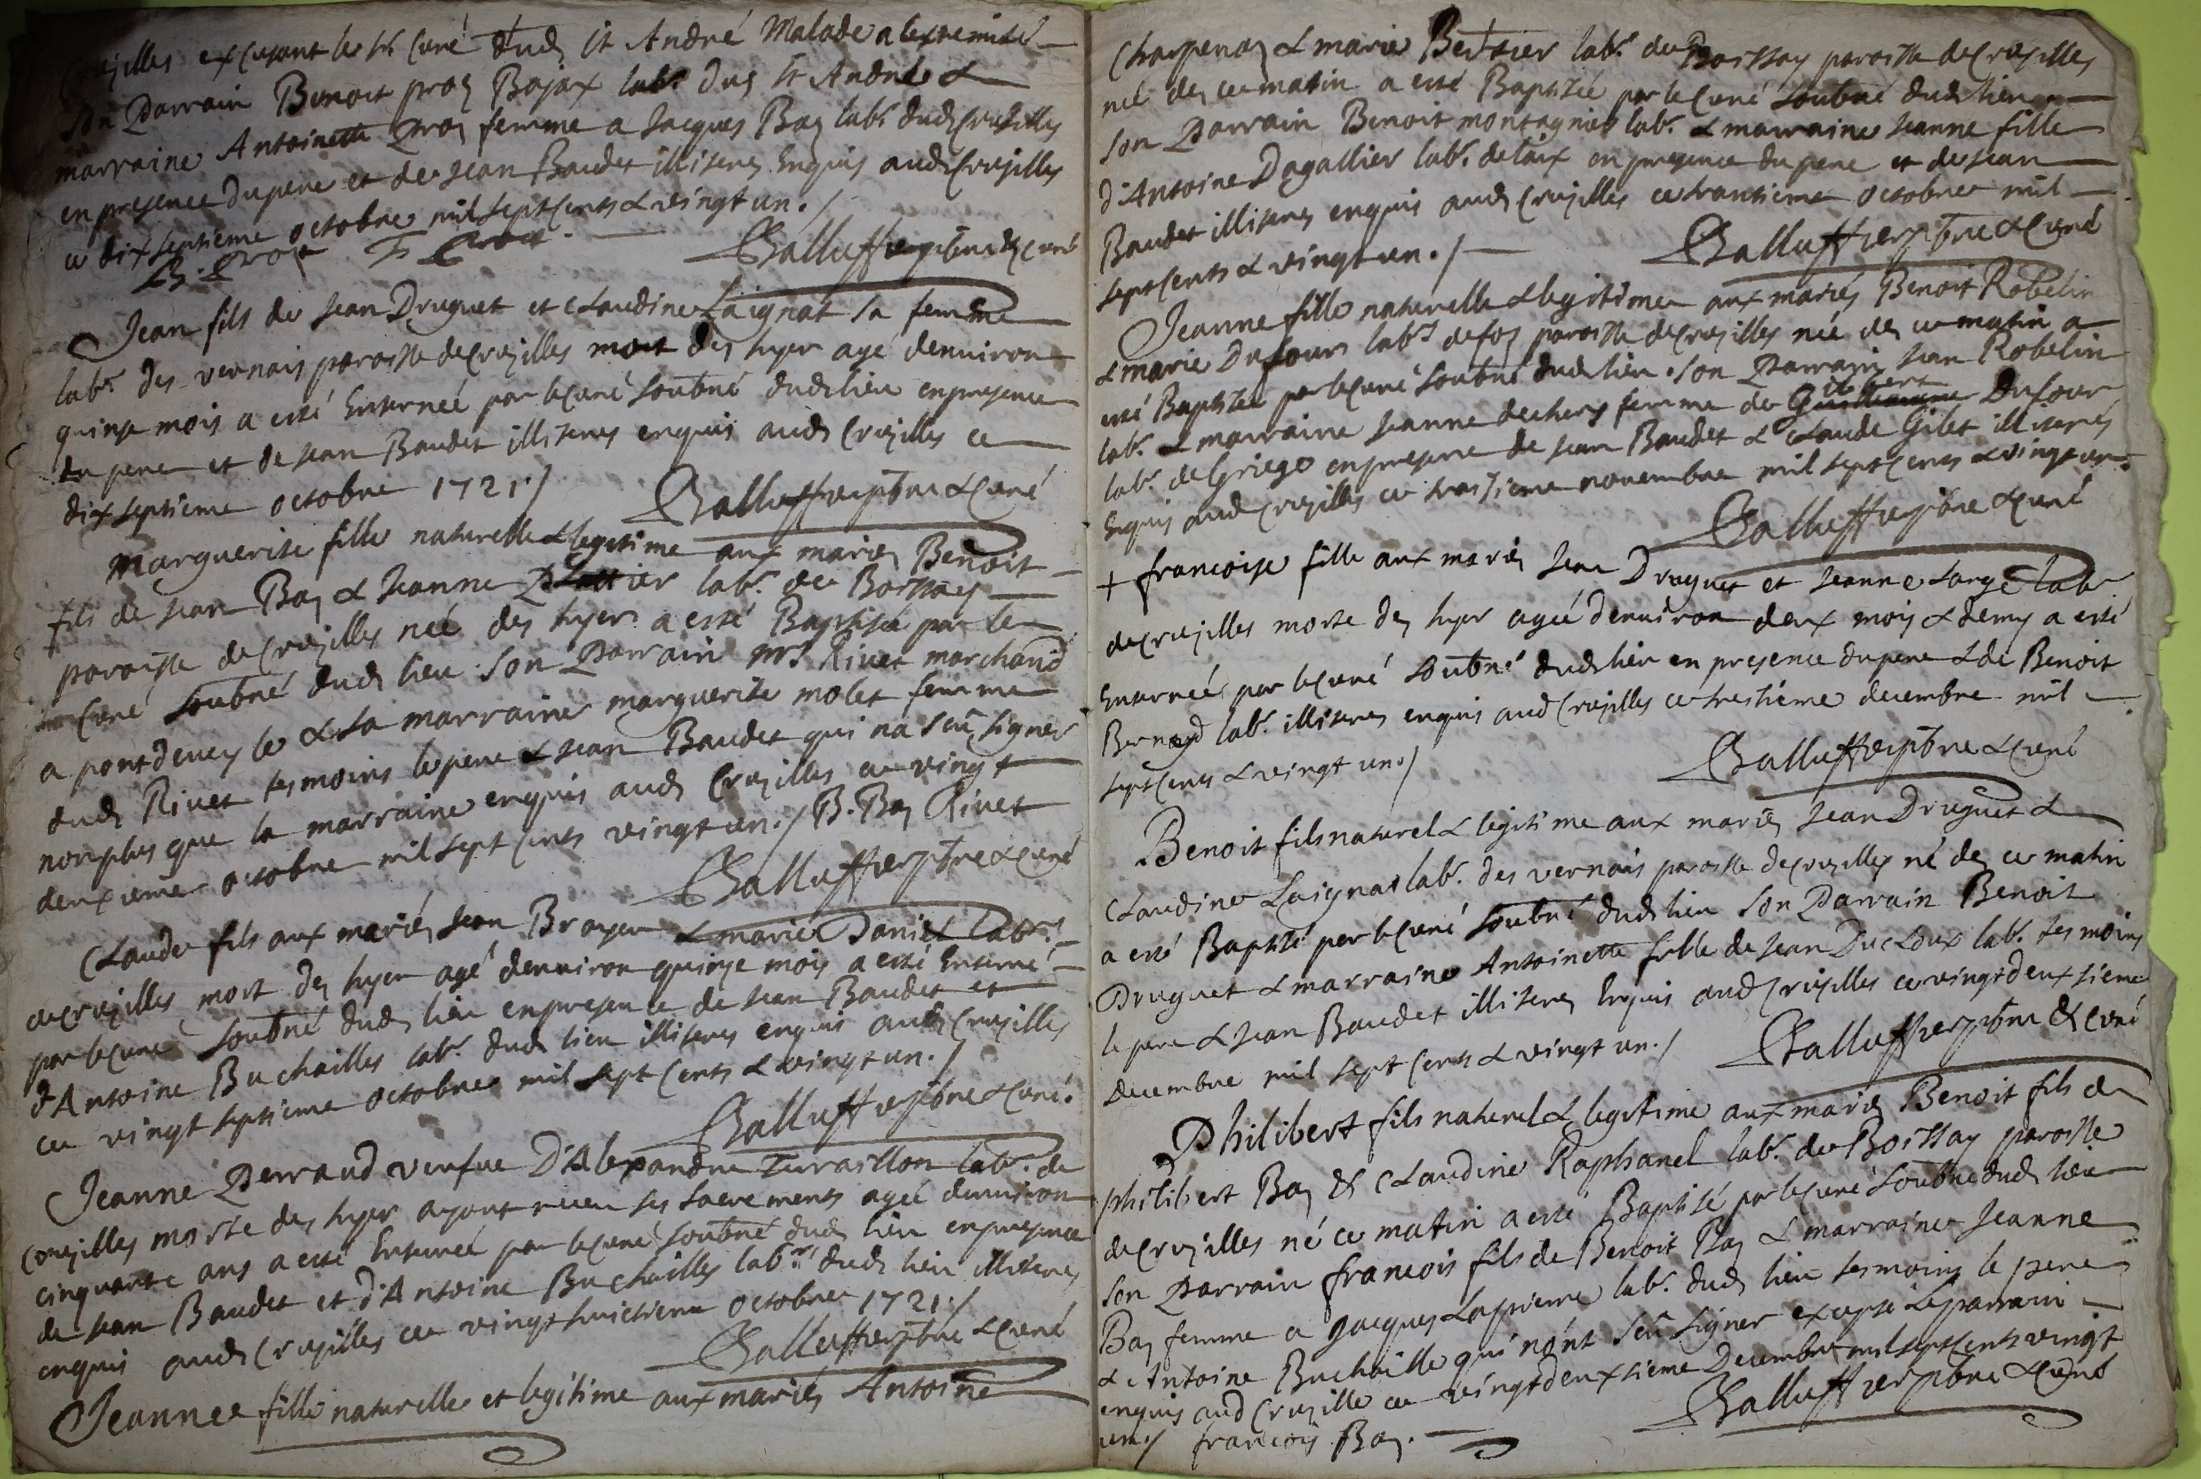 Crusilles excusant le Sr Curé dud St André malade a lextremité
son Parrain Benoit proz Bajax labr dud St André &
marraine Antoinette Proz femme a Jacques Bay labr dud Crusilles
en presence du pere et de Jean Baudet illiteres Enquis aud Crusilles
ce dix septieme octobre mil sept cents & vingt un./
Galluffier pbre & curé
Jean fils de Jean Druguet et Claudine Laignat sa femme
labrs des vernais paroisse de Crusilles mort des hyer agé denuiron
quinze mois a esté Enterreé par le Curé soubné dud lieu en presence
du pere et de Jean Baudet illiteres enquis aud Crusilles ce
dix septieme octobre 1721./
Galluffier pbre & curé
Marguerite fille naturelle & legitime aux mariez Benoit
fils de Jean Bay & Jeanne labr de Boissay
paroisse de Crusilles née des hyer a esté Baptisée par le
Curé soubné dud lieu son Parrain Mr Rivet marchand
a pontdevey le & sa marraine marguerite molet femme
dud Rivet tesmoins le pere & Jean Baudet qui na sçu signer
non plus que la marraine enquis aud Crusilles ce vingt
deuxieme octobre mil sept cents vingt un./ B. Bay Rivet
Galluffier pbre & curé
Claude fils aux mariéz Jean Broyer & marie Daniel labrs
de Crusilles mort dez hyer agé denuiron quinze mois a esté Enterré
par le curé soubné dud lieu en presence de Jean Baudet et
d'Antoine Buchailles labr dud lieu illiteres enquis aud Crusilles
ce vingt septieme octobre mil sept cents & vingt un./
Galluffier pbre & curé.
Jeanne Perraud veufue D'Alexandre Terraillon labr de
Crusilles morte dez hyer ayant receu ses sacrements agée denuiron
cinquante ans a esté Enterreé par le curé soubné dud lieu en presence
de Jean Baudet et d'Antoine Buchailles labrs dud lieu illiteres
enquis aud Crusilles ce vingt huictieme octobre 1721./
Galluffier pbre & curé
Jeanne fille naturelle et legitime aux mariés Antoine
Charpenay & marie Bertier labr de Boissay paroisse de Crusilles
née dez ce matin a esté Baptisée par le Curé soubné dud lieu
son Parrain Benoit montagnat labr & marraine Jeanne fille
d'Antoine Dagallier labr de laix en presence du pere et de Jean
Baudet illiteres enquis aud Crusilles ce trantieme octobre mil
sept cents & vingt un./
Galluffier pbre & curé
Jeanne fille naturelle & legitime aux mariés Benoit Robelin
& marie Dufour labrs de foz paroisse de Crusilles née dez ce matin a
esté Baptisée par le Curé soubné dud lieu. son Parrain Jean Robelin
labr & marraine Jeanne dechery femme de Guillaume Dufour
labr de Griege en presence de Jean Baudet & Claude Gilet illiterés
Enquis aud Crusilles ce troisieme novembre mil sept cents & vingt un.
Galluffier pbre & curé
+ francoise fille aux mariéz Jean Druguet et Jeanne Large labr
de Crusilles morte dez hyer agée denuiron deux mois & demy a esté
Enterreé par le curé soubné dud lieu en presence du pere & de Benoit
Bernard labr illiteres enquis aud Crusilles ce treisieme decembre mil
sept cents & vingt un./
Galluffier pbre & curé
Benoit fils naturel & legitime aux mariéz Jean Druguet &
Claudine Laignat labr des vernais paroisse de Crusilles né dez ce matin
a esté Baptisé par le curé soubné dud lieu son Parrain Benoit
Druguet & marraine Antoinette fille de Jean Ducloux labr tesmoins
le pere & Jean Baudet illiteres Enquis aud Crusilles ce vingt deuxsieme
decembre mil sept cents & vingt un./
Galluffier pbre & curé
Philibert fils naturel & legitime aux mariéz Benoit fils de
philibert Bay & Claudine Raphanel labr de Boissay paroisse
de Crusilles né ce matin a esté Baptisé par le curé soubné dud lieu
son Parrain francois fils de Benoit Bay & marraine Jeanne
Bay femme a Jacques Lapierre labr dud lieu tesmoins le pere
& Antoine Buchaille qui n'ont sçu signer excepté Le parrain
enquis aud Crusille ce vingt deuxsieme Decembre mil sept cents vingt
un./ francois Bay.
Galluffier pbre & curé